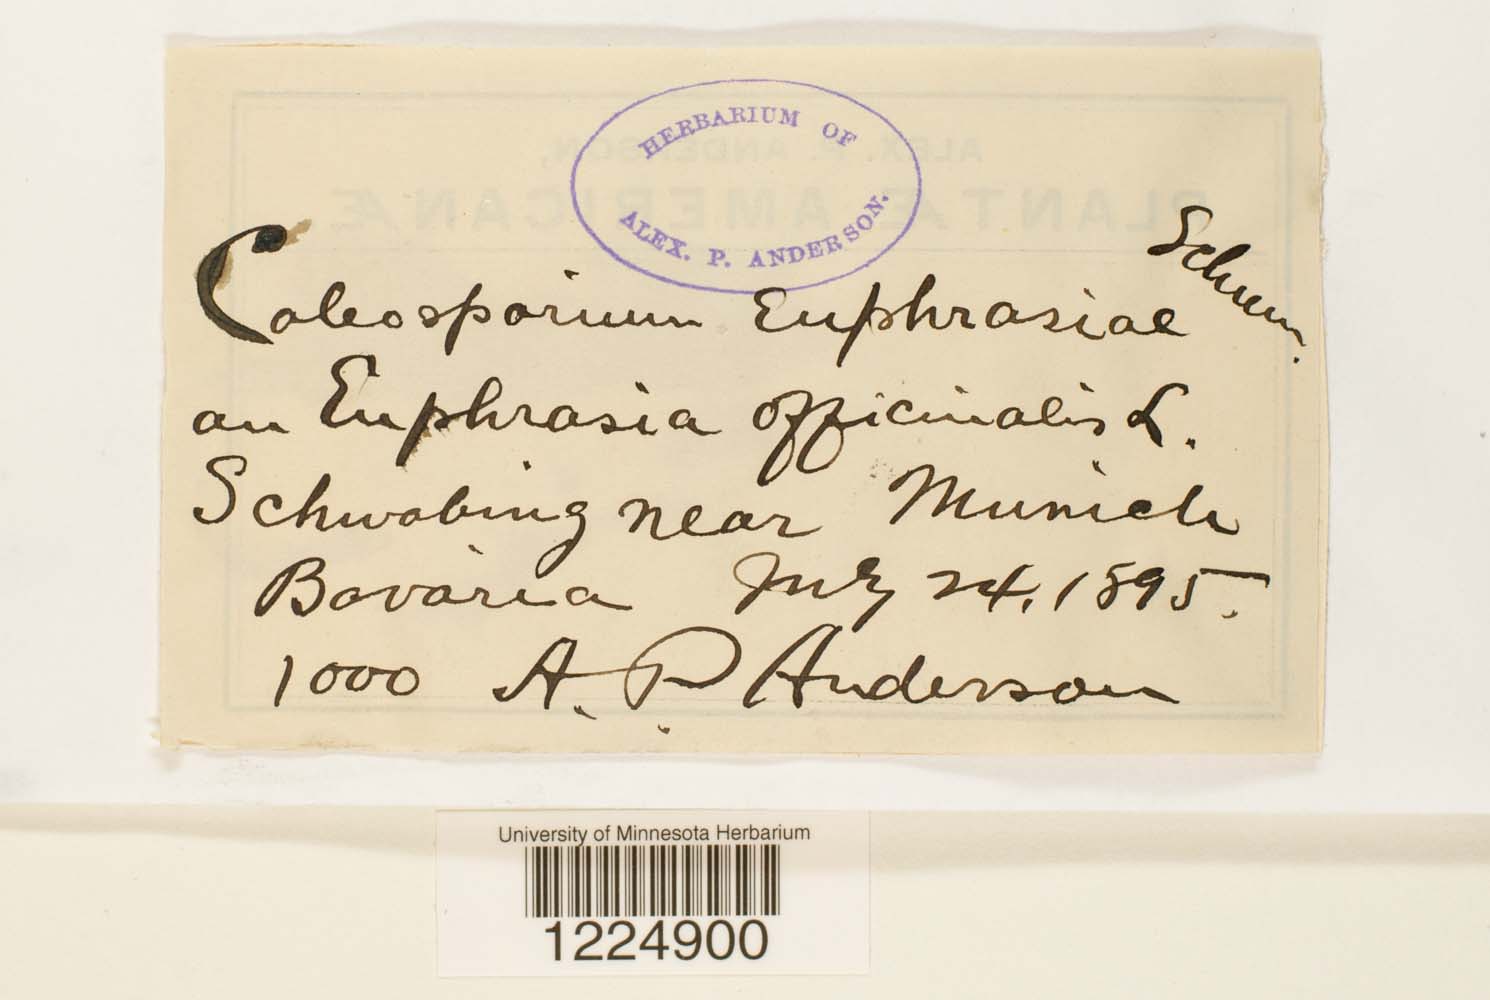 HERBARIUM OF
ALEX. P. ANDERSON.
ALEX. P. ANDERSON,
PLANTÆ AMERICANÆ
Coleosporium Euphrasiae Schum.
on Euphrasia officinalis L.
Schwabing near Munich
Bavaria July 24, 1895.
1000 A. P. Anderson
University of Minnesota Herbarium
1224900